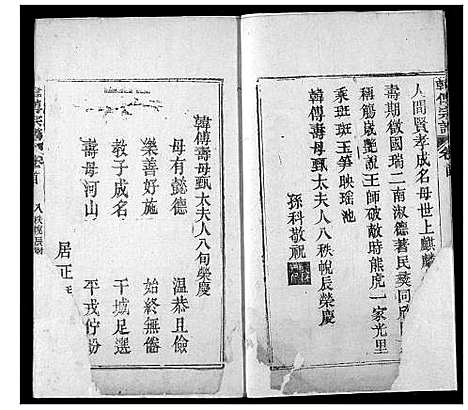 韓傅宗譜 卷首
人間賢孝成名母世上麒麟
壽期徵國瑞二南淑德著民彝同
稱觴歲艷說王師破敵時熊虎一家光里
乘班班玉笋映瑤池
孫科敬祝
韓傅壽母甄太夫人八秩帨辰榮慶
韓傅壽母甄太夫人八旬榮慶
母有懿德 溫恭且儉
樂善好施 始終無倦
教子成名 干城足選
壽母河山 平戎佇盼
居正
韓傅宗譜 卷首 八秩帨辰